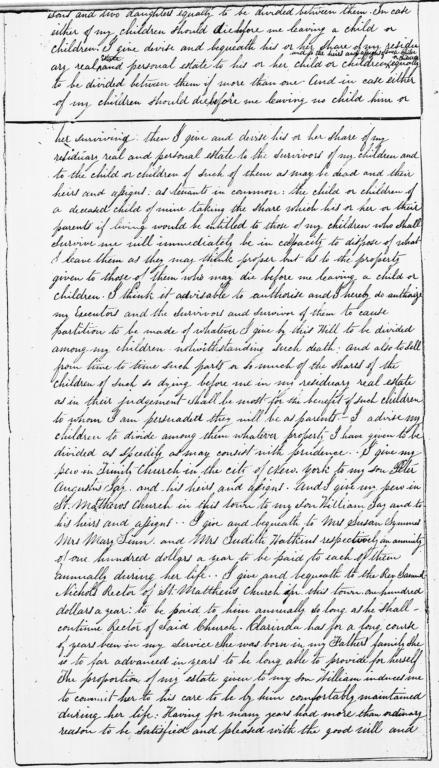 sons and two daughters equally to be divided between them. In case
either of my children should die before me leaving a child or
children. I give devise and bequeath his or her share of my residu
and to the heirs and assigns of such child or children
ary real estate and personal estate to his or her child or children equally
to be divided between them if more than one. And in case either
of my children should die before me leaving no child him or
her surviving: then I give and devise his or her share of my
residuary real and personal estate to the survivors of my children and
to the child or children of such of them as may be dead and their
heirs and assigns. as tenants in common: the child or children of
a deceased child of mine taking the share which his or her or their
parents if living would be intitled to those of my children who shall
survive me will immediately be in capacity to dispose of what
I leave them as they may think proper but as to the property
given to those of them who may die before me leaving a child or
children. I think it advisable to authorise and I hereby do authorize
my Executors and the survivors and survivor of them to cause
partition to be made of whatever I give by this Will to be divided
among my children notwithstanding such death. and also to sell
from time to time such parts or so much of the shares of the
children of such so dying before me in my residuary real estate
as in their judgement shall be most for the benefit of such children
to whom I am persuaded they will be as parents - I advise my
children to divide among them whatever property I have given to be
divided as speedily as may consist with prudence. . I give my
pew in Trinity Church in the city of New York to my son Peter
Augustus Jay. and his heirs and assigns. And I give my pew in
St. Matthews Church in this town to my son William Jay and to
his heirs and assigns. . I give and bequeath to Mrs Susan Symmes
Mrs Mary Linn. and Mrs Judith Watkins respectively an annuity
of one hundred dollars a year to be paid to each of them
annually during her life. . I give and bequeath to the Rev Samuel
Nichols Rector of St. Matthews Church in this town. an hundred
dollars a year: to be paid to him annually so long as he shall
continue Rector of said Church. Clarinda has for a long course
of years been in my service She was born in my Fathers family She
is to far advanced in years to be long able to provide for herself
The proportion of my estate given to my son William induces me
to commit her to his care to be by him comfortably maintained
during her life. Having for many years had more than ordinary
reason to be satisfied and pleased with the good will and